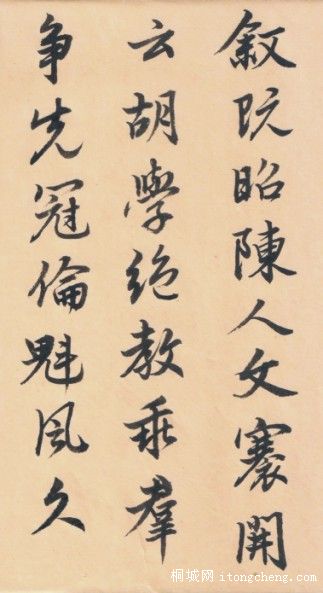 叙既昭陳人文褰開
云胡學绝教乖羣
争先冠倫魁風久
桐城网 itongcheng.com